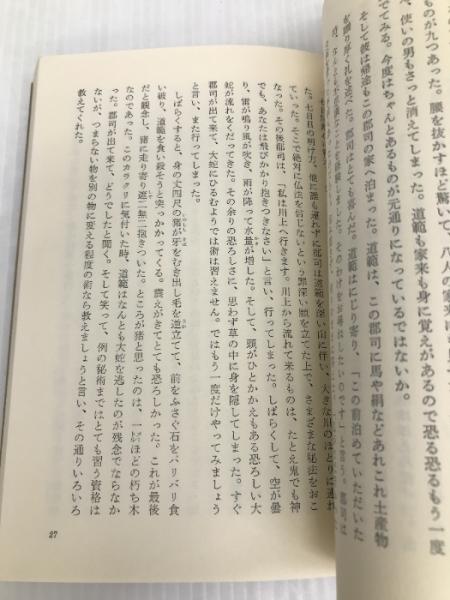 ものが九つあった。腰を抜かすほど驚いて、八人の家来に
へ、使いの男もさっと消えてしまった。道範も家来も身に覚えがあるので恐る恐るもう一度
でてみる。今度はちゃんとあるものが元通りになっているではないか。
そして彼は帰途もこの郡司の家へ泊まった。道範は、この郡司に馬や絹などあれこれ土産物
郡司はとても喜んだ。道範はにじり寄り、「この前泊めていただいた
そのわけをお尋ねしたいのです」と言う。郡司は
た。七日目の明け方、他に誰も連れずに郡司は道範を深い山に伴い、大きな川のほとりに連れ
ていった。そこで絶対に仏法を信じないという罪深い願を立てた上で、さまざまな秘法をおこ
なった。その後郡司は、「私は川上へ行きます。川上から流れて来るものは、たとえ鬼でも神
でも、あなたは飛びかかり抱きつきなさい」と言い、行ってしまった。しばらくして、空が曇
り、雷が鳴り風が吹き、雨が降って水量が増した。そして、頭がひとかかえもある恐ろしい大
蛇が流れをくだってきた。その余りの恐ろしさに、思わず草の中に身を隠してしまった。すぐ
郡司が出て来て、大蛇にひるむようでは術は習えません。ではもう一度だけやってみましょう
と言い、また行ってしまった。
しばらくすると、身の丈四尺の猪が牙をむき出し毛を逆立てて、前をふさぐ石をバリバリ食
い破り、道範を食い殺そうと突っかかってくる。震えがきてとても恐ろしかった。これが最後
だと観念し、猪に走り寄り遮二無二抱きついた。ところが猪と思ったのは、一ほどの朽ち木
なのであった。このカラクリに気付いた時、道範はなんとも大蛇を逃したのが残念でならなか
った。郡司が出て来て、どうでしたと聞く。そして笑って、例の秘術まではとても習う資格は
ないが、つまらない物を別の物に変える程度の術なら教えましょうと言い、その通りいろいろ
教えてくれた。
27